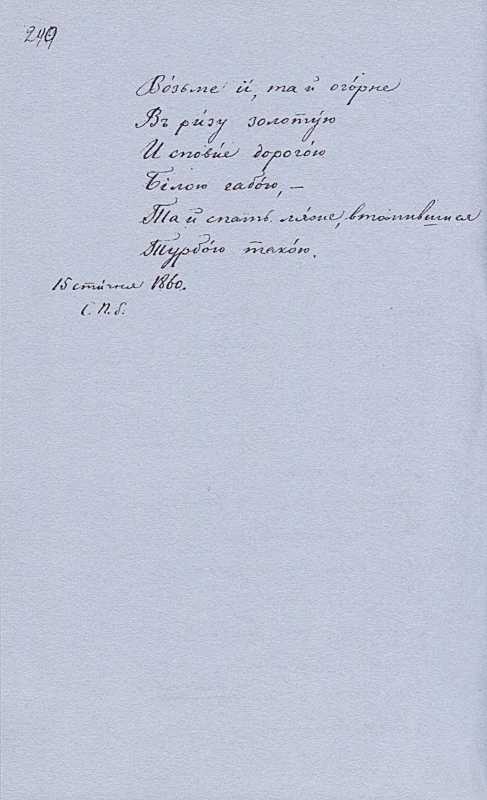 249
Во́зьме іі́, та й ого́рне
Въ ри́зу золоту́ю
И спові́е дорого́ю
Бі́лою габо́ю, —
Та й спать ля́же, втоми́вшися
Турбо́ю тако́ю.
15 сті́чня 1860.
С. П. б.